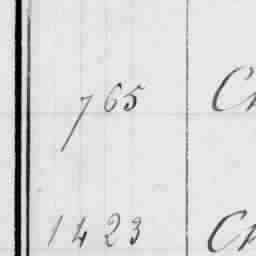 765 Ch
1423 Ch